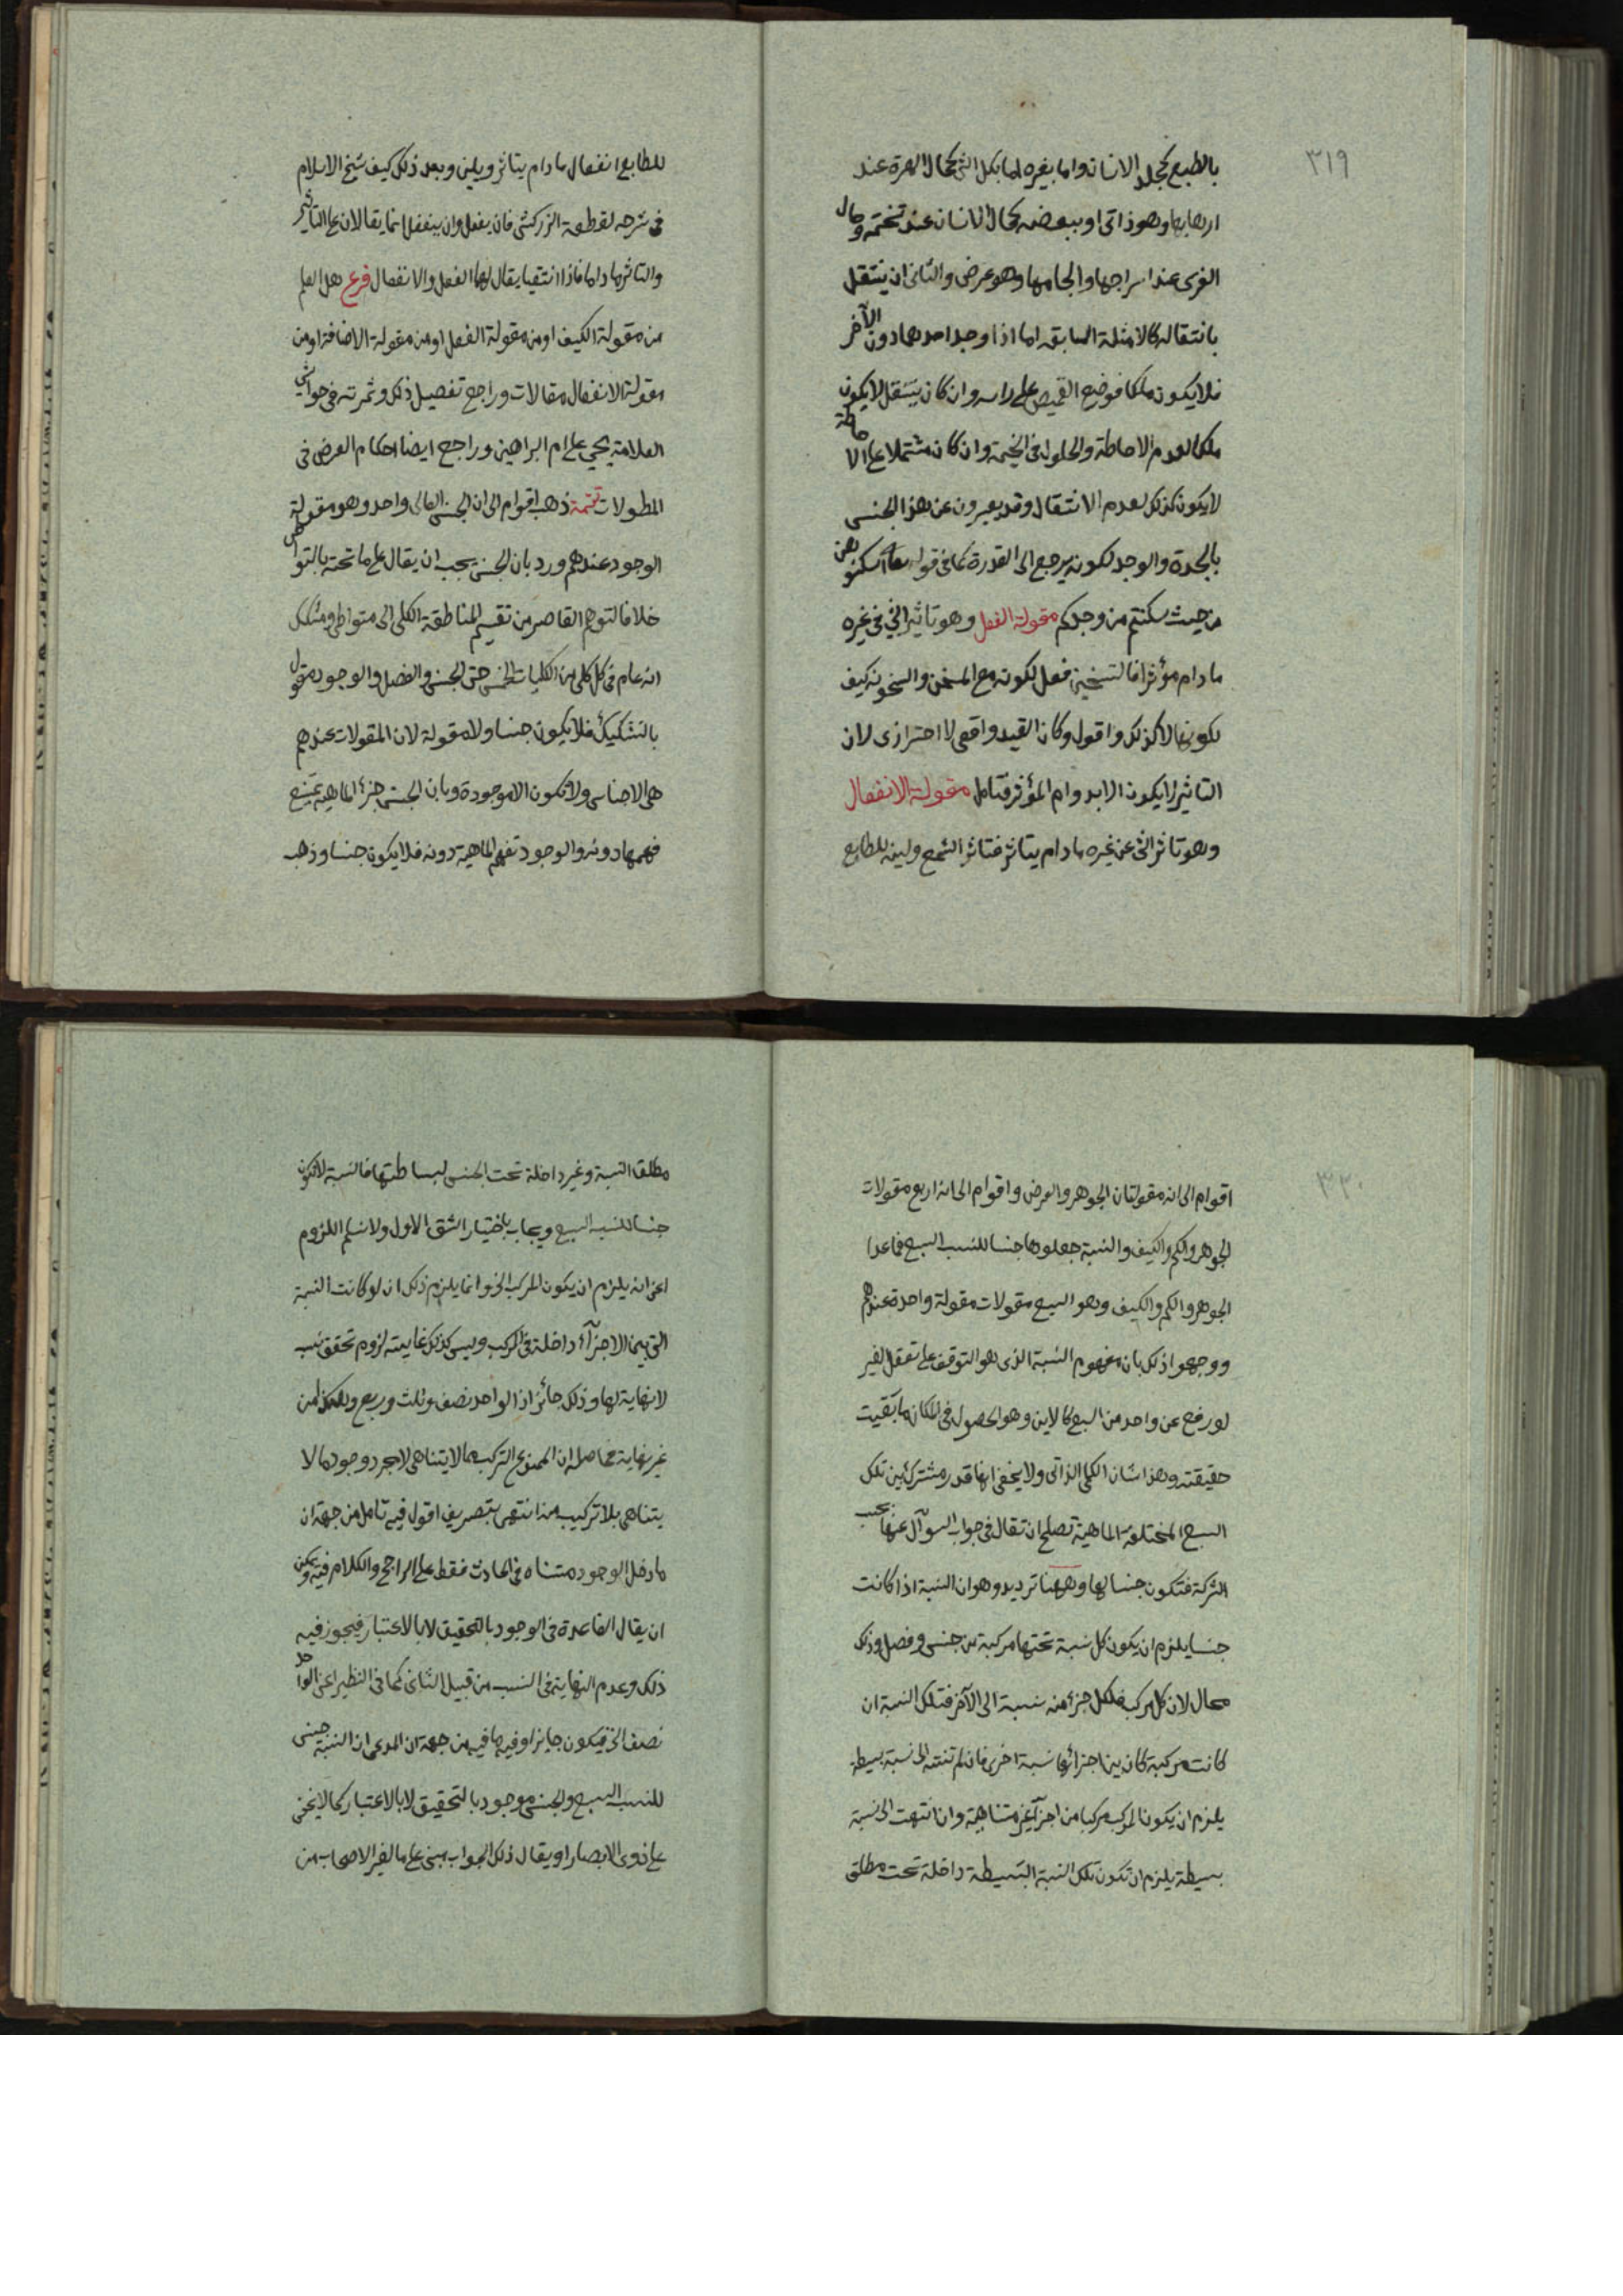 ٣١٩
بالطبع كجلد الانسان واما بغيره اما بكل الشئ كحال الهرة عند
اهابها وهو ذاتى او ببعضه كحال الانسان عند تختمه وحال
الفرس عند اسراجها والجامها وهو عرض والثانى ان ينتقل
بانتقاله كالامثلة السابقه اما اذا وجد احدهما دون الآخر
فلا يكون ملكا فوضع القميص على راسه وان كان ينتقل لا يكون
ملكا لعدم الاحاطة والحلول فى الخيمة وان كان مشتملا على الاحاطة
لا يكون كذلك لعدم الانتقال وقد يعبرون عن هذا الجنس
بالجدة والوجد لكونه يرجع الى القدرة كما فى قوله تعالى اسكنوهن
من حيث سكنتم من وجدكم مقولة الفعل وهو تاثير الشئ فى غيره
ما دام مؤثرا فالتسخين فعل لكونه مع المسخن والسخونة كيف
لكونها لا كذلك واقول وكان القيد واقعى لا احترازى لان
التاثير لا يكون الا بدوام المؤثر فتامل مقولة الانفعال
وهو تاثر الشئ عن غيره ما دام يتاثر فتاثر الشمع ولينه للطابع
للطابع انفعال ما دام يتاثر ويلين وبعد ذلك كيف شيخ الاسلام
فى شرحه لقطعة الزركشى فان يفعل وان ينفعل انما يقالان على التأثير
والتاثر ما داما فاذا انتفيا يقال لهما الفعل والانفعال فرع هل العلم
من مقولة الكيف او من مقولة الفعل او من مقولة الاضافة او من
مقولة الانفعال مقالات وراجع تفصيل ذلك وثمرته فى حواشى
العلامة يحيى على ام البراهين وراجع ايضا احكام العرض فى
المطولات تتمة ذهب اقوام الى ان الجنس العالى واحد وهو مقولة
الوجود عندهم ورد بان الجنس يجب ان يقال على ما تحته بالتواطى
خلافا لتوهم القاصر من تقسيم المناطقة الكلى الى متواطى ومشكك
انه عام فى كل كلى من الكليات الخمس حتى الجنس والفصل والوجود مقول
بالتشكيك فلا يكون جنسا ولا مقولة لان المقولات عندهم
هى الاجناس ولا تكون الا موجودة وبان الجنس جزء الماهية يمتنع
فهمها دونه والوجود تفهم الماهية دونه فلا يكون جنسا وذهب
٣٢٠
اقوام الى انه مقولتان الجوهر والعرض واقوام الى انه اربع مقولات
الجوهر والكم والكيف والنسبة جعلوها جنسا للنسب السبع فما عدا
الجوهر والكم والكيف وهو السبع مقولات مقولة واحدة عندهم
ووجهوا ذلك بان مفهوم النسبة الذى هو التوقف على تعقل الغير
لو رفع عن واحد من السبع كالاين وهو الحصول فى المكان ما بقيت
حقيقته وهذا شان الكلى الذاتى ولا يخفى انها قدر مشترك بين تلك
السبع المختلفة الماهية تصلح ان تقال فى جواب السوآل عنها بحسب
الشركة فتكون جنسا لها وههنا ترديد وهو ان النسبة اذا كانت
جنسا يلزم ان يكون كل نسبة تحتها مركبة من جنس وفصل وذلك
محال لان كل مركب فلكل جزء منه نسبة الى الآخر فتلك النسبة ان
كانت مركبة كان بين اجزائها نسبة اخرى فان لم تنته الى نسبة بسيطة
يلزم ان يكون المركب مركبا من اجزآء غير متناهية وان انتهت الى نسبة
بسيطة يلزم ان تكون تلك النسبة البسيطة داخلة تحت مطلق
مطلق النسبة وغير داخلة تحت الجنس لبساطتها فالنسبة لا تكون
جنسا للنسب السبع ويجاب باختيار الشق الاول ولا نسلم اللزوم
اعنى انه يلزم ان يكون المركب الخ وانما يلزم ذلك ان لو كانت النسبة
التى بين الاجزآء داخلة فى المركب وليس كذلك غايته لزوم تحقق نسب
لا نهاية لها وذلك جائز اذ الواحد نصف وثلث وربع وهكذا من
غير نهاية فحاصله ان الممنوع التركب مما لا يتناهى لا مجرد وجود ما لا
يتناهى بلا تركيب منه انتهى بتصريف اقول فيه تامل من جهة ان
ما دخل الوجود متناه فى الحادث فقط على الراجح والكلام فيه ويمكن
ان يقال القاعدة فى الوجود بالتحقيق لا بالاعتبار فيجوز فيه
ذلك وعدم النهاية فى النسب من قبيل الثانى كما فى النظير اعنى الواحد
نصف الخ فيكون جايزا وفيه ما فيه من جهة ان المدعى ان النسبة جنس
للنسب السبع والجنس موجود بالتحقيق لا بالاعتبار كما لا يخفى
على ذوى الابصار او يقال ذلك الجواب مبنى على ما لغير الاصحاب من